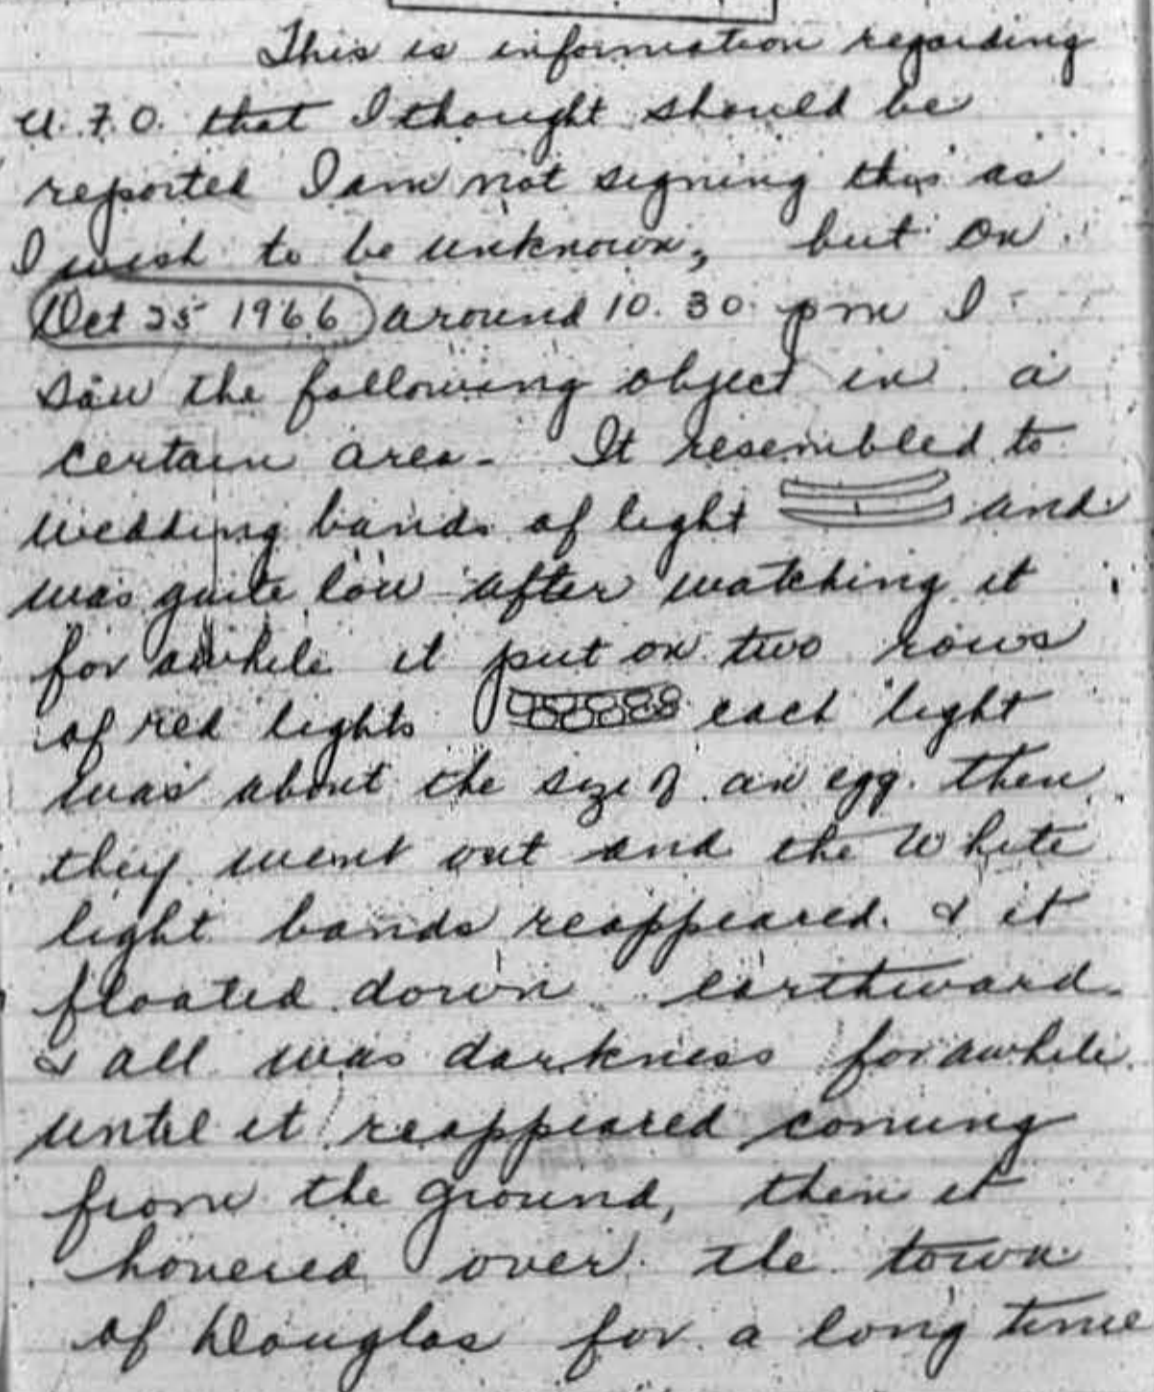 This is information regarding
U.F.O. that I thought should be
reported I am not signing this as
I wish to be unknown, but on
Oct 25 1966 around 10.30 pm I
saw the following object in a
certain area - It resembled to
wedding bands of light and
was quite low after watching it
for awhile it put on two rows
of red lights each light
was about the size of an egg. then
they went out and the White
light bands reappeared. & it
floated down earthward
& all was darkness for awhile
until it reappeared coming
from the ground, then it
hovered over the town
of Douglas for a long time